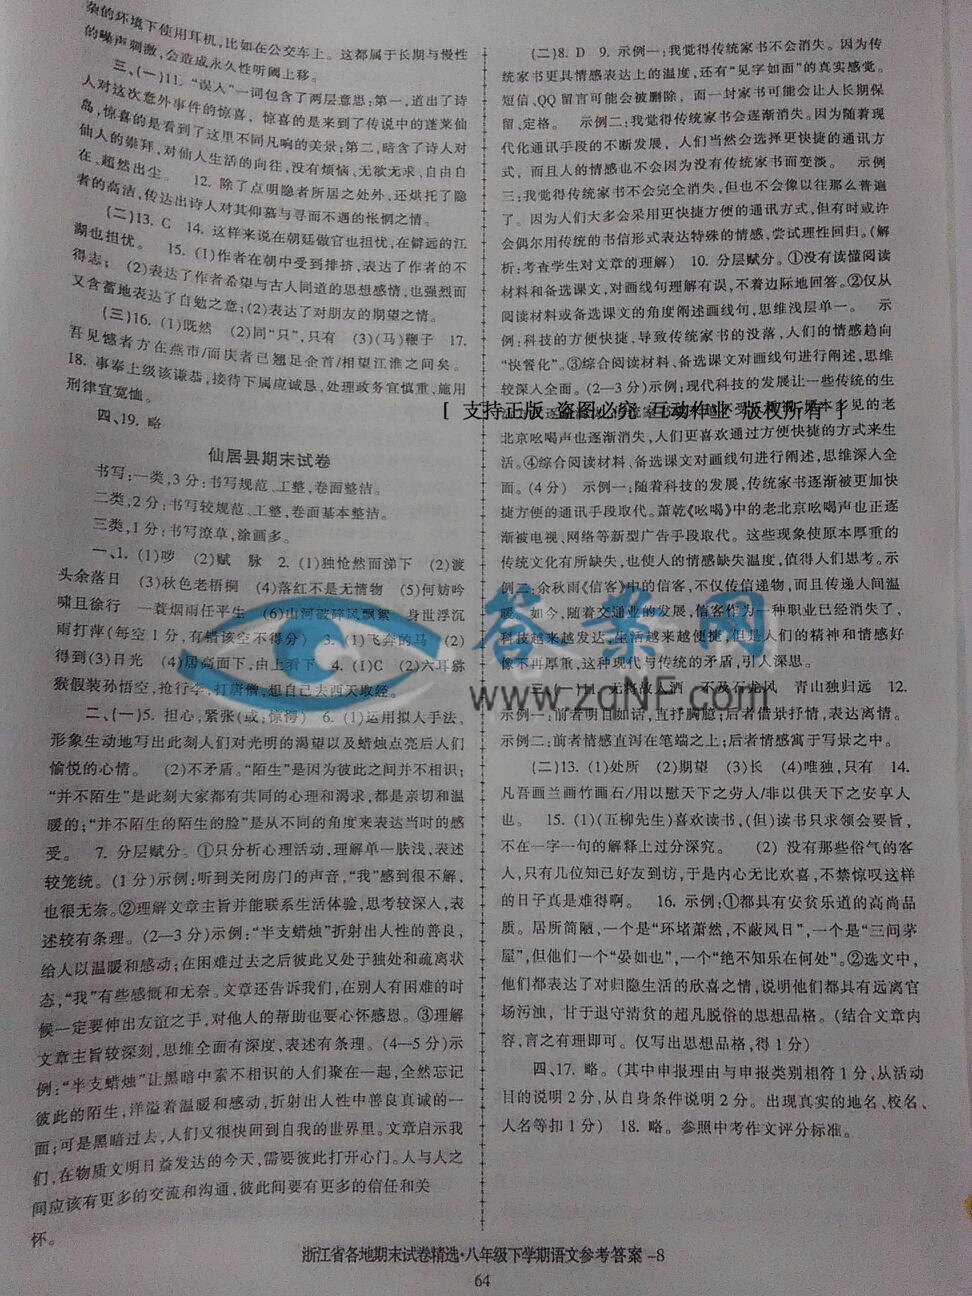 杂的环境下使用耳机,比如在公交车上。这都属于长期与慢性
的噪声刺激,会造成永久性听阈上移。
三、(一)11. “误入”一词包含了两层意思:第一,道出了诗
人对这次意外事件的惊喜,惊喜的是来到了传说中的蓬莱仙
岛,惊喜的是看到了这里不同凡响的美景;第二,暗含了诗人对
仙人的崇拜,对仙人生活的向往,没有烦恼、无欲无求,自由自
在、超然出尘。 12. 除了点明隐者所居之处外,还烘托了隐
者的高洁,传达出诗人对其仰慕与寻而不遇的怅惘之情。
(二)13. C 14. 这样来说在朝廷做官也担忧,在僻远的江
湖也担忧。 15. (1)作者在朝中受到排挤,表达了作者的不
得志; (2)表达了作者希望与古人同道的思想感情,也强烈而
又含蓄地表达了自勉之意;(2)表达了对朋友的期望之情。
(三)16. (1)既然 (2)同“只”,只有 (3)(马)鞭子 17.
吾见憾者方在燕市/而庆者已翘足企首/相望江淮之间矣。
18. 事奉上级该谦恭,接待下属应诚恳,处理政务宜慎重,施用
刑律宜宽恤。
四、19. 略
仙居县期末试卷
书写:一类,3分:书写规范、工整,卷面整洁。
二类,2分:书写较规范、工整,卷面基本整洁。
三类,1分:书写潦草,涂画多。
一、1. (1)哕 (2)赋 脉 2. (1)独怆然而涕下 (2)渡
头余落日 (3)秋色老梧桐 (4)落红不是无情物 (5)何妨吟
啸且徐行 一蓑烟雨任平生 (6)山河破碎风飘絮 身世浮沉
雨打萍(每空1分,有错该空不得分) 3. (1)飞奔的马 (2)
得到(3)日光 (4)居高面下,由上看下 4. (1)C (2)六耳猕
猴假装孙悟空,抢行李,打唐僧,想自己去西天取经。
二、(一)5. 担心,紧张(或:惊愕) 6. (1)运用拟人手法,
形象生动地写出此刻人们对光明的渴望以及蜡烛点亮后人们
愉悦的心情。 (2)不矛盾。“陌生”是因为彼此之间并不相识;
“并不陌生”是此刻大家都有共同的心理和渴求,都是亲切和温
暖的;“并不陌生的陌生的脸”是从不同的角度来表达当时的感
受。 7. 分层赋分。①只分析心理活动,理解单一肤浅,表述
较笼统。(1分)示例:听到关闭房门的声音,“我”感到很不解,
也很无奈。②理解文章主旨并能联系生活体验,思考较深入,表
述较有条理。(2—3分)示例:“半支蜡烛”折射出人性的善良,
给人以温暖和感动;在困难过去之后彼此又处于独处和疏离状
态,“我”有些感慨和无奈。文章还告诉我们,在别人有困难的时
候一定要伸出友谊之手,对他人的帮助也要心怀感恩。③理解
文章主旨较深刻,思维全面有深度,表述有条理。(4—5分)示
例:“半支蜡烛”让黑暗中素不相识的人们聚在一起,全然忘记
彼此的陌生,洋溢着温暖和感动,折射出人性中善良真诚的一
面;可是黑暗过去,人们又很快回到自我的世界里。文章启示我
们,在物质文明日益发达的今天,需要彼此打开心门。人与人之
间应该有更多的交流和沟通,彼此间要有更多的信任和关
怀。
(二)8. D 9. 示例一:我觉得传统家书不会消失。因为传
统家书更具情感表达上的温度,还有“见字如面”的真实感觉。
短信、QQ留言可能会被删除,而一封家书可能会让人长期保
留、定格。 示例二:我觉得传统家书会逐渐消失。因为随着现
代化通讯手段的不断发展,人们当然会选择更快捷的通讯方
式,而且人的情感也不会因为没有传统家书而变淡。 示例
三:我觉得传统家书不会完全消失,但也不会像以往那么普遍
了。因为人们大多会采用更快捷方便的通讯方式,但有时或许
会偶尔用传统的书信形式表达特殊的情感,尝试理性回归。(解
析:考查学生对文章的理解) 10. 分层赋分。①没有读懂阅读
材料和备选课文,对画线句理解有误,不着边际地回答。②仅从
阅读材料或备选课文的角度阐述画线句,思维浅层单一。 示
例:科技的方便快捷,导致传统家书的没落,人们的情感趋向
“快餐化”。③综合阅读材料、备选课文对画线句进行阐述,思维
较深入全面。(2—3分)示例:现代科技的发展让一些传统的生
[ 支持正版 盗图必究 互动作业 版权所有 ]
京吆喝声也逐渐消失,人们更重于方便快捷的方式来生
活。④综合阅读材料、备选课文对画线句进行阐述,思维深入全
面。(4分) 示例一:随着科技的发展,传统家书逐渐被更加快
捷方便的通讯手段取代。萧乾《吆喝》中的老北京吆喝声也正逐
渐被电视、网络等新型广告手段取代。这些现象使原本厚重的
传统文化有所缺失,也使人的情感缺失温度,值得人们思考。示
例二:余秋雨《信客》中的信客,不仅传信递物,而且传递人间温
暖。如今,随着交通业的发展,信客作为一种职业已经消失了,
科技越来越发达,生活越来越便捷,但是人们的精神和情感好
像不再厚重,这种现代与传统的矛盾,引人深思。
三、(一)11. 无将故人酒 不及石尤风 青山独归远 12.
示例一:前者明白如话,直抒胸臆;后者借景抒情,表达离情。
示例二:前者情感直泻在笔端之上;后者情感寓于写景之中。
(二)13. (1)处所 (2)期望 (3)长 (4)唯独,只有 14.
凡吾画兰画竹画石/用以慰天下之劳人/非以供天下之安享人
也。 15. (1)(五柳先生)喜欢读书,(但)读书只求领会要旨,
不在一字一句的解释上过分深究。 (2) 没有那些俗气的客
人,只有几位知己好友到访,于是内心无比欢喜,不禁惊叹这样
的日子真是难得啊。 16. 示例:①都具有安贫乐道的高尚品
质。居所简陋,一个是“环堵萧然,不蔽风日”,一个是“三间茅
屋”,但他们一个“晏如也”,一个“绝不知乐在何处”。②选文中,
他们都表达了对归隐生活的欣喜之情,说明他们都具有远离官
场污浊,甘于退守清贫的超凡脱俗的思想品格。(结合文章内
容,言之有理即可。仅写出思想品格,得1分)
四、17. 略。(其中申报理由与申报类别相符1分,从活动
目的说明2分,从自身条件说明2分。出现真实的地名、校名、
人名等扣1分) 18. 略。参照中考作文评分标准。
答案网
www.zqNF.com
浙江省各地期末试卷精选·八年级下学期语文参考答案-8
64